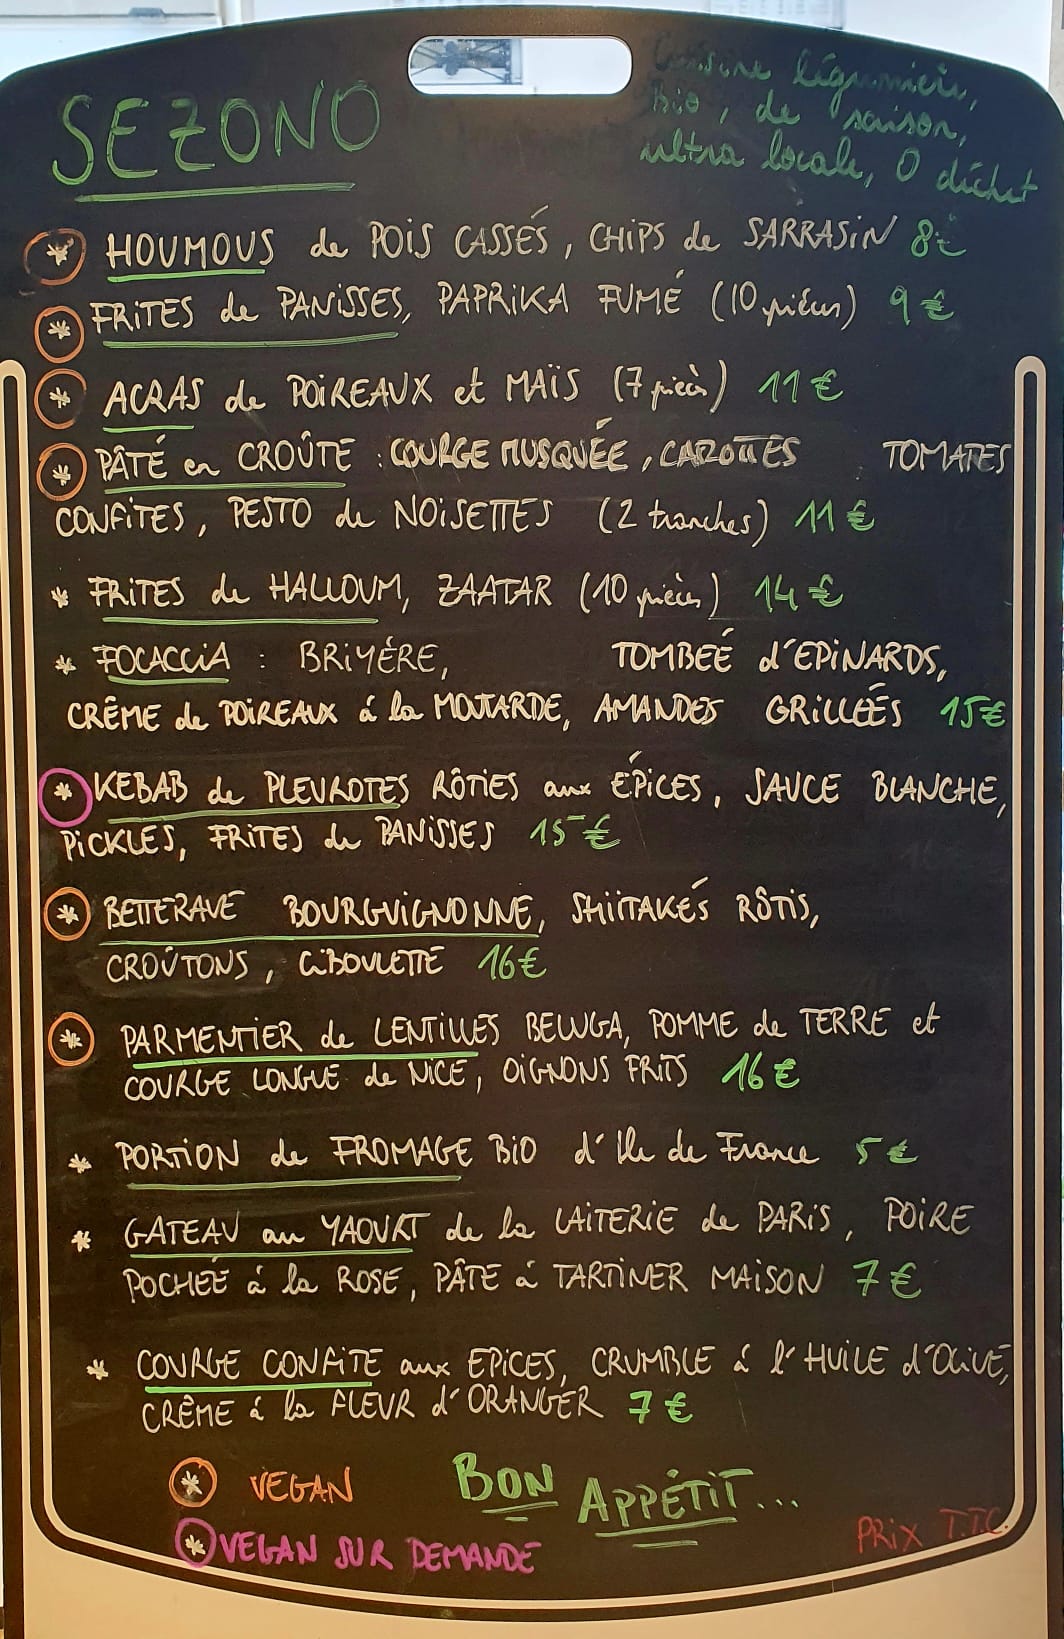 SEZONO
Cuisine légumière,
Bio, de saison,
ultra locale, 0 déchet
* HOUMOUS de POIS CASSÉS, CHIPS de SARRASIN 8€
* FRITES de PANISSES, PAPRIKA FUMÉ (10 pièces) 9€
* ACRAS de POIREAUX et MAÏS (7 pièces) 11€
* PÂTÉ en CROÛTE : COURGE MUSQUÉE, CAROTTES TOMATES
CONFITES, PESTO de NOISETTES (2 tranches) 11€
* FRITES de HALLOUM, ZAATAR (10 pièces) 14€
* FOCACCIA : BRIYÈRE, TOMBEÉ d'EPINARDS,
CRÊME de POIREAUX á la MOUTARDE, AMANDES GRILLEÉS 15€
* KEBAB de PLEUROTES RÔTIES aux ÉPICES, SAUCE BLANCHE,
PICKLES, FRITES de PANISSES 15€
* BETTERAVE BOURGUIGNONNE, SHIITAKÉS RÔTIS,
CROÛTONS, CIBOULETTE 16€
* PARMENTIER de LENTILLES BELUGA, POMME de TERRE et
COURGE LONGUE de NICE, OIGNONS FRITS 16€
* PORTION de FROMAGE BIO d'Ile de France 5€
* GATEAU au YAOURT de la LAITERIE de PARIS, POIRE
POCHEÉ á la ROSE, PÂTE á TARTINER MAISON 7€
* COURGE CONFITE aux EPICES, CRUMBLE á l'HUILE d'OLIVE,
CRÊME á la FLEUR d'ORANGER 7€
* VEGAN
BON APPÉTIT...
* VEGAN SUR DEMANDE
PRIX T.T.C.